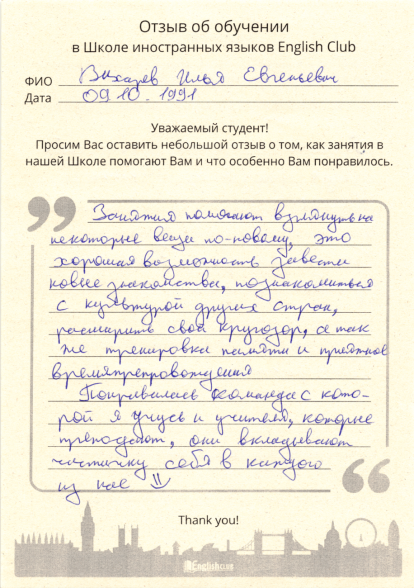 Отзыв об обучении
в Школе иностранных языков English Club
ФИО Вихарев Илья Евгеньевич
Дата 09.10.1991
Уважаемый студент!
Просим Вас оставить небольшой отзыв о том, как занятия в
нашей Школе помогают Вам и что особенно Вам понравилось.
Занятия помогают взглянуть на
некоторые вещи по-новому, это
хорошая возможность завести
новые знакомства, познакомиться
с культурой других стран,
расширить свой кругозор, а так
же тренировка памяти и приятное
времяпрепровождения
Понравилась команда с кото-
рой я учусь и учителя, которые
преподают, они вкладывают
частичку себя в каждого
из нас
Thank you!
English Club